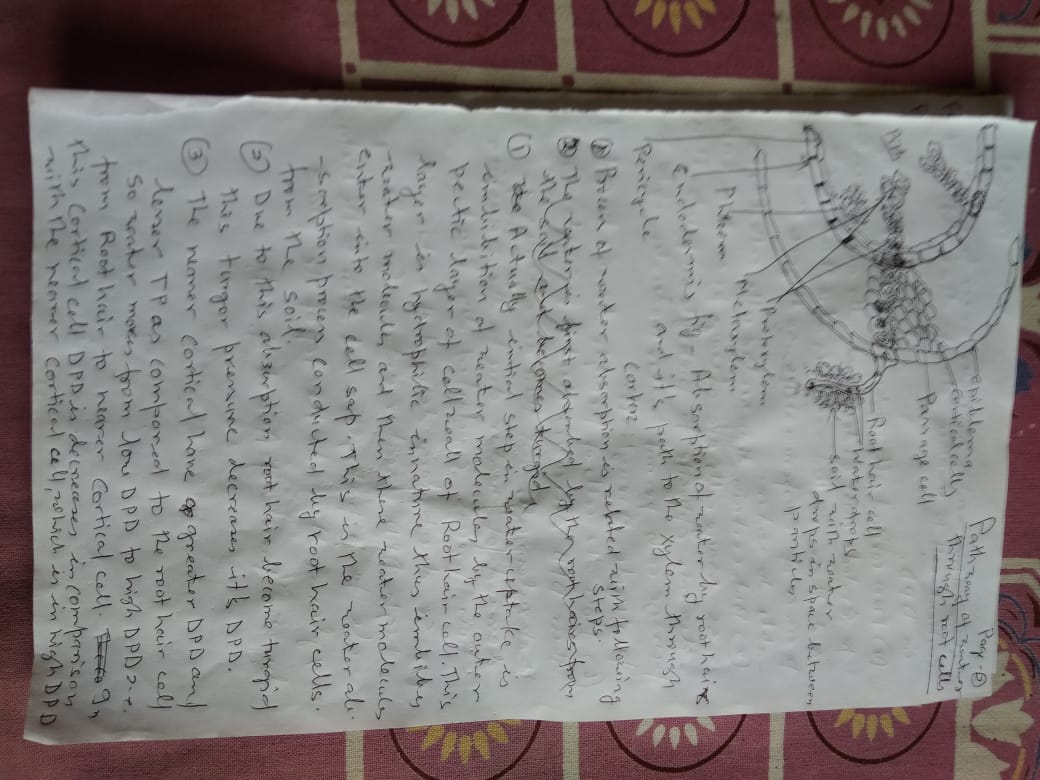 Page ②
Pathway of water
through root cells
Epiblema
Cortical cells
Passage cell
Root hair cell
Water drops
Soil with water
drops in space between
particles
Pith
Protoxylem
Metaxylem
Phloem
Endodermis
Pericycle
Fig - Absorption of water by root hairs
and it's path to the xylem through
Cortex
Process of water absorption is related with following
steps.
① Actually initial step in water uptake is
imbibition of water molecules, by the outer
pectic layer of cell wall of Root hair cell. This
layer is hydrophilic in nature this imbibes
water molecules and then these water molecules
enter into the cell sap. This is the water ab-
-sorption process conducted by root hair cells.
from the soil.
② Due to this absorption root hair become turgid
this turgor pressure decreases it's DPD.
③ The nearer cortical have greater DPD and
lesser TP as compared to the root hair cell
So water moves from low DPD to high DPD i.e.
from Root hair to nearer Cortical cell. In
this Cortical cell DPD is decreases in comparison
with the nearer cortical cell, which is in high DPD